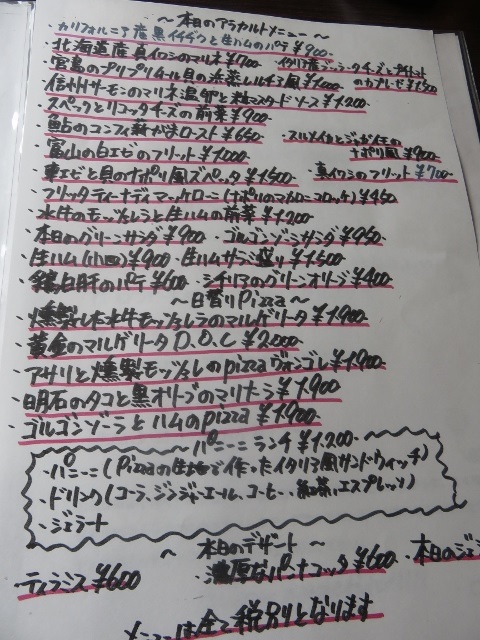 ～本日のアラカルトメニュー～
・カリフォルニア産黒イチヂクと生ハムのパテ ¥900
・北海道産真イワシのマリネ ¥700 ・イタリア産
のカプレーゼ ¥1500
・宮島のプリプリムール貝の浜蒸しルチア風 ¥1000
・信州サーモンのマリネ温卵と粒マスタードソース ¥1200
・スペックとリコッタチーズの前菜 ¥900
・鮎のコンフィ ロースト ¥650 ・スルメイカとジャガイモの
ナポリ風 ¥900
・富山の白エビのフリット ¥1000
・車エビと貝のナポリ風ズペッタ ¥1500 真イワシのフリット ¥700
・フリッタティーナディマッケローニ(ナポリのマカロニコロッケ) ¥450
・水牛のモッツァレラと生ハムの前菜 ¥1200
・本日のグリーンサラダ ¥900 ・ゴルゴンゾーラサラダ ¥950
・生ハム(小皿) ¥900 ・生ハムサラミ盛り ¥1500
・鶏白肝のパテ ¥600 ・シチリアのグリーンオリーブ ¥400
～日替りPizza～
・燻製した水牛モッツァレラのマルゲリータ ¥1900
・黄金のマルゲリータ D.O.C ¥2000
・アサリと燻製モッツァレラのpizzaヴォンゴレ ¥1900
・明石のタコと黒オリーブのマリナーラ ¥1900
・ゴルゴンゾーラとハムのpizza ¥1900
パニーニランチ ¥1200
・パニーニ(Pizzaの生地で作ったイタリア風サンドウィッチ)
・ドリンク(コーラ、ジンジャーエール、コーヒー、紅茶、エスプレッソ)
・ジェラート
～本日のデザート～
・ティラミス ¥600 ・濃厚なパンナコッタ ¥600 ・本日のジェ
メニューは全て税別りとなります